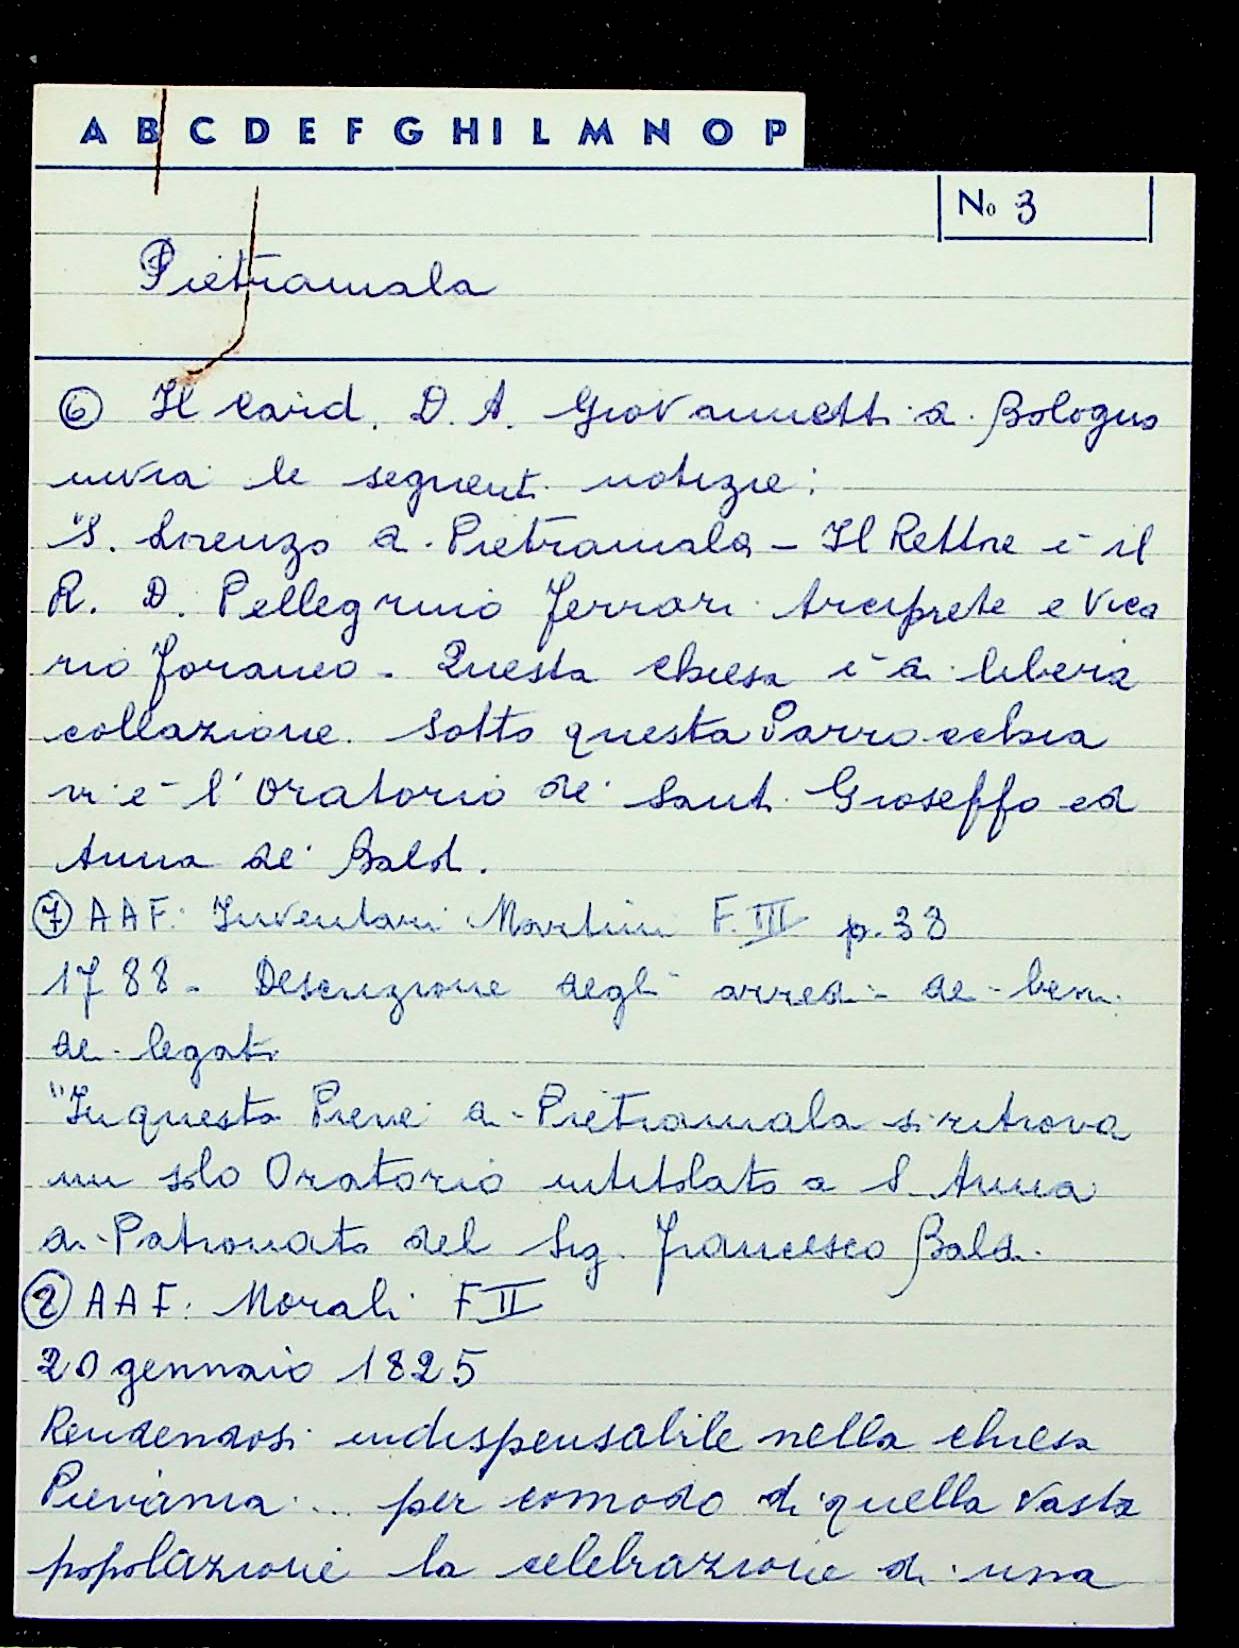 A B C D E F G H I L M N O P
No 3
Pietramala
⑥ Il Card. D. A. Giovannetti di Bologna
invia le seguenti notizie:
"S. Lorenzo a Pietramala - Il Rettore è il
R. D. Pellegrino Ferrari Arciprete e Vica
rio foraneo - Questa chiesa è di libera
collazione. Sotto questa Parrocchia
vi è l'Oratorio de' Santi Gioseffo ed
Anna de' Baldi.
⑦ AAF: Inventari Martini F. III p. 38
1788 - Descrizione degli arredi - dei beni
dei legati
"In questa Pieve di Pietramala si ritrova
un solo Oratorio intitolato a S. Anna
di Patronato del Sig. Francesco Baldi.
⑧ AAF: Morali F II
20 gennaio 1825
Rendendosi indispensabile nella chiesa
Pievania ... per comodo di quella vasta
popolazione la celebrazione di una